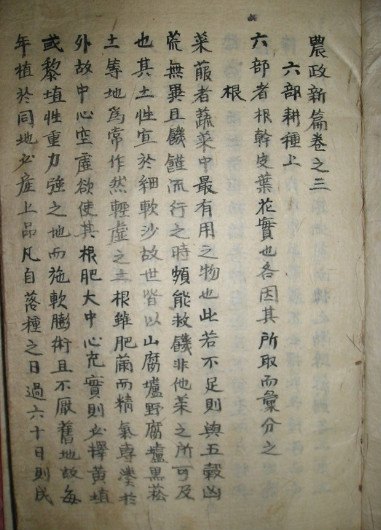 農政新篇卷之三
六部耕種上
六部者根幹皮葉花實也各因其所取而彙分之
根
菜菔者蔬菜中最有用之物也此若不足則與五穀凶
荒無異且饑饉流行之時頻能救饑非他菜之所可及
也其土性宜於細軟沙故世皆以山腐壚野腐壚黑菘
土等地爲常作然輕虛之土根雖肥菌而精氣專濙於
外故中心空虛欲使其根肥大中心充實則必擇黃埴
或黎埴性重力強之地而施軟膨術且不厭舊地故每
年植於同地必産上品凡自落種之日過六十日則民